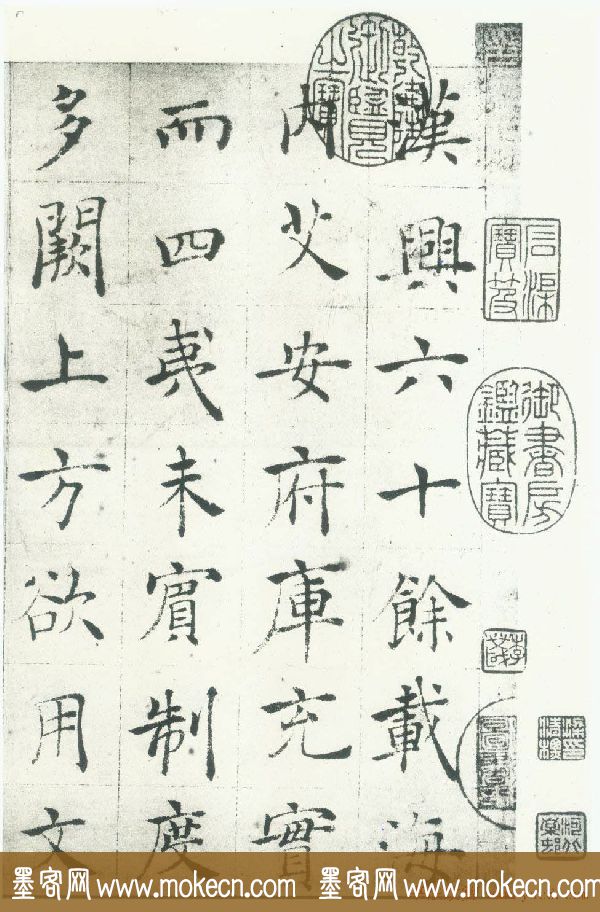 漢興六十餘載海
内艾安府庫充實
而四夷未賓制度
多闕上方欲用文
乾隆御覽之寶
石渠寶笈
御書房鑑藏寶
墨客网 www.mokecn.com 墨客网 www.mokecn.com